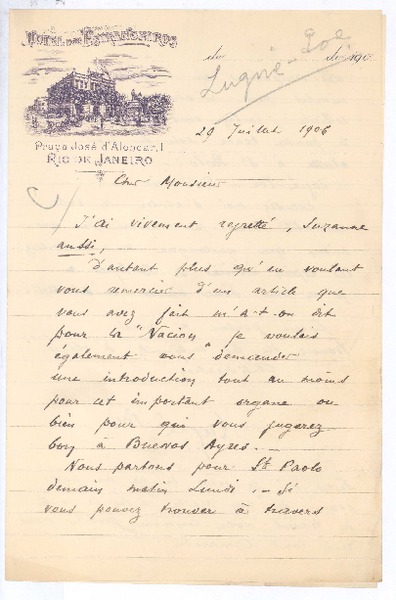 HOTEL DOS ESTRANGEIROS
Praça José d'Alencar, 1
RIO DE JANEIRO
de de 190
Lugné-Poe
29 Juillet 1906
Cher Monsieur
J'ai vivement regretté, Suzanne
aussi,
d'autant plus qu'en voulant
vous remercier d'un article que
vous avez fait m'a-t-on dit
pour la "Nacion" je voulais
également vous demander
une introduction tout au moins
pour cet important organe ou
bien pour qui vous jugerez
bon à Buenos Ayres. _
Nous partons pour St Paolo
demain matin Lundi. _ Si
vous pouvez trouver à travers